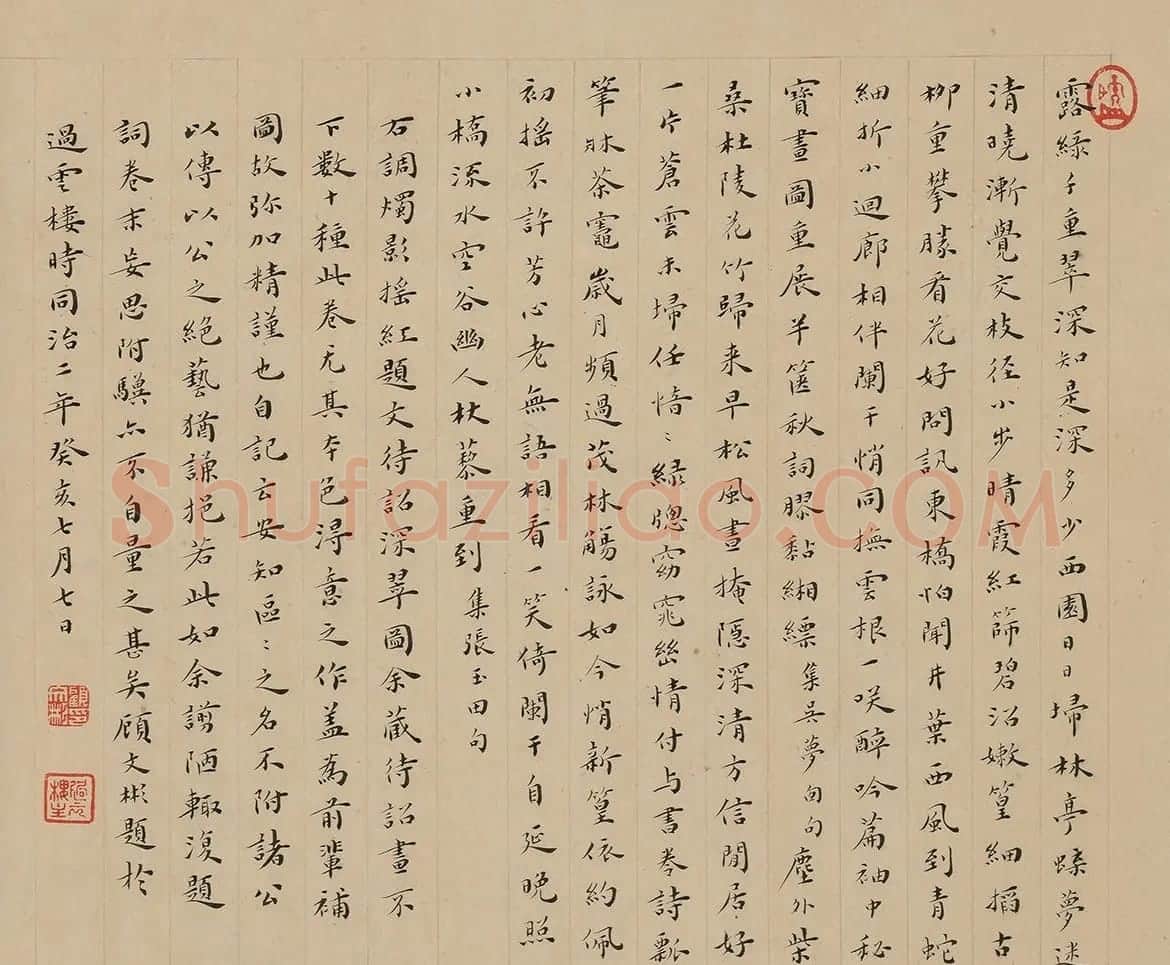 露綠千重翠深知是深多少西園日日埽林亭蜨夢迷
清曉漸覺交枝徑小步晴霞紅篩碧沼嫩篁細搯古
柳重攀勝看花好問訊東橋怕聞井葉西風到青蛇
細折小迴廊相伴闌干悄同撫雲根一咲醉吟篇袖中秘
寶畫圖重展半篋秋詞膠黏緗縹集吳夢窗句塵外柴
桑杜陵花竹歸来早松風晝掩隱深清方信閒居好
一片蒼雲未埽任愔〻綠窗窈窕幽情付与書卷詩瓢
筆牀茶竈歲月頻過茂林觴詠如今悄新篁依約佩
初搖不許芳心老無語相看一笑倚闌干自延晚照
小橋流水空谷幽人杖藜重到集張玉田句
右調燭影搖紅題文待詔深翠圖余藏待詔畫不
下數十種此卷尤其本色得意之作盖為前輩補
圖故弥加精謹也自記云安知區〻之名不附諸公
以傳以公之絕藝猶謙挹若此如余謭陋輒復題
詞卷末妄思附驥亦不自量之甚矣顧文彬題於
過雲樓時同治二年癸亥七月七日
顧文彬印
過雲樓主
Shufaziliao.COM